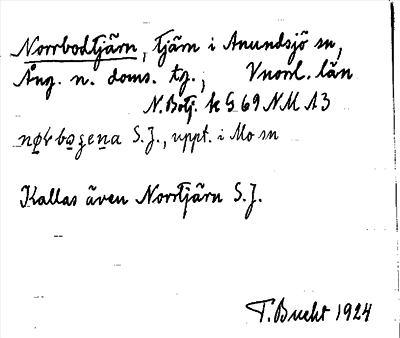 Norrbodtjärn, tjärn i Anundsjö sn,
Ång. n. doms. tg., Vnorrl. län
N. Botj. k G 69 NM A3
S. J., uppt. i Mo sn
Kallas även Norrtjärn S. J.
T. Bucht 1924